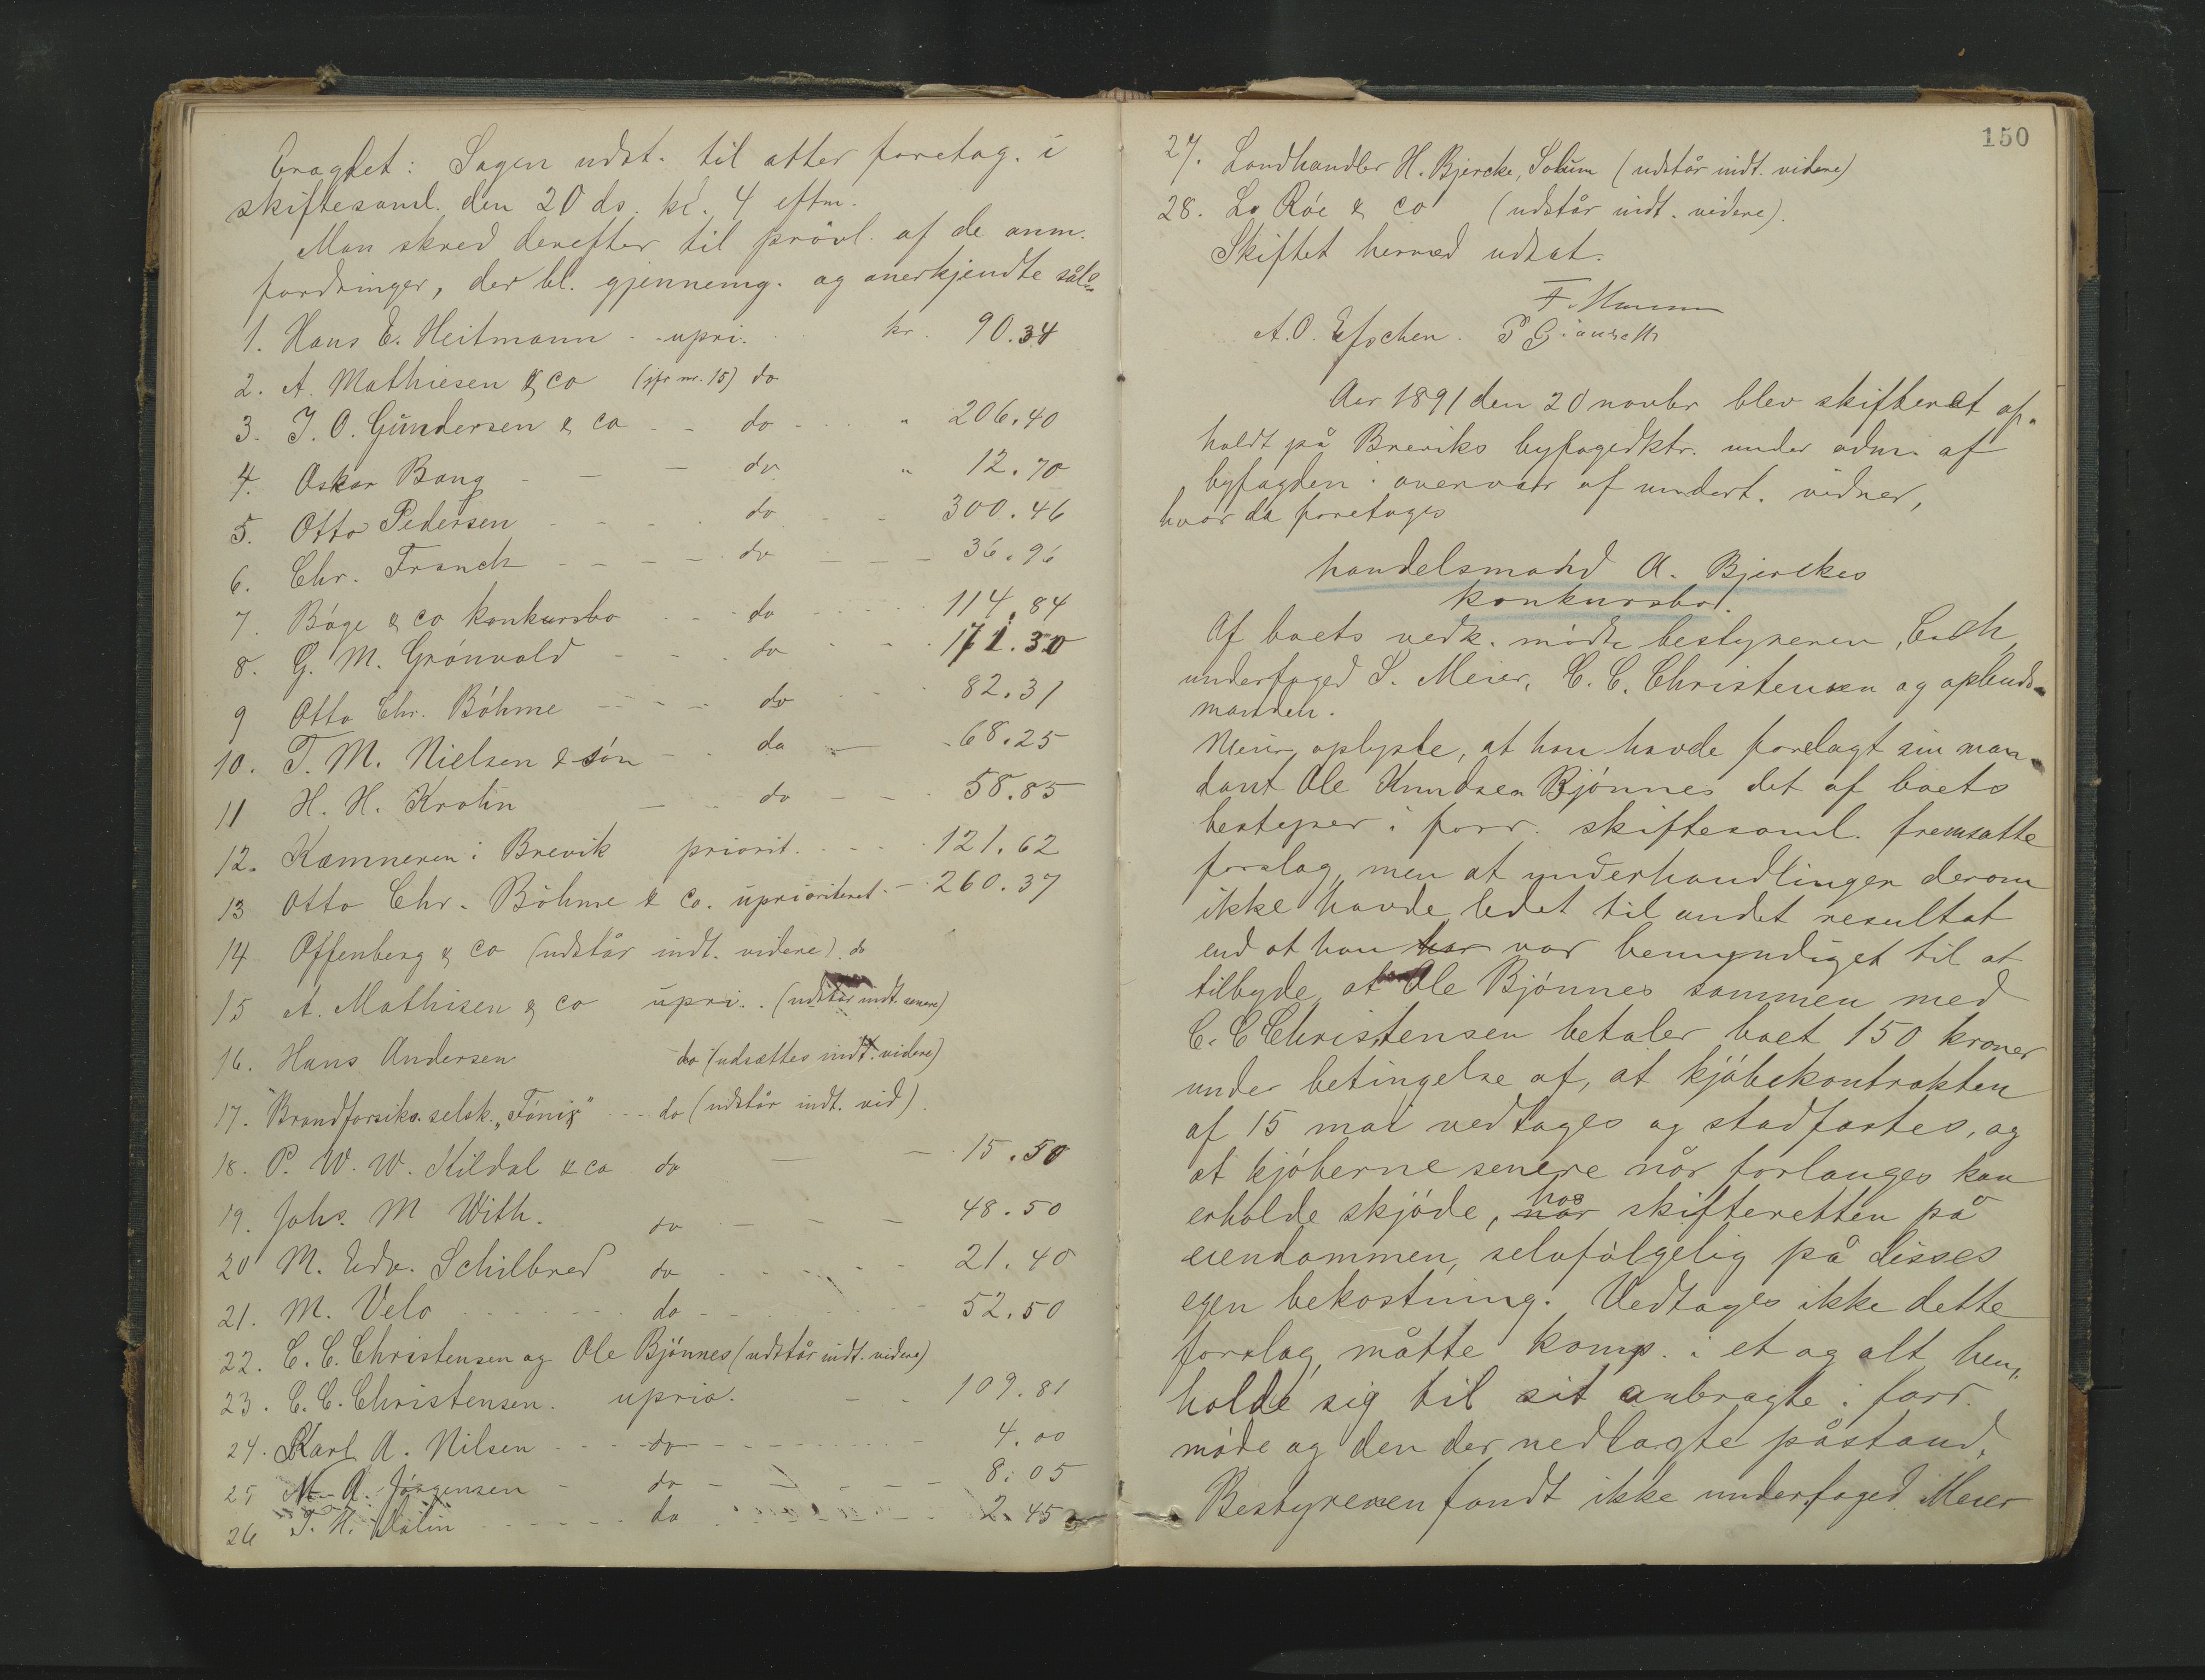 Eragtet: Sagen udst. til atter foretag. i
skiftesaml. den 20 ds. kl. 4 eftm.
Man skred derefter til prövl. af de anm.
fordringer, der bl. gjennemg. og anerkjendte sål=
1. Hans E. Heitmann - - upri. kr. 90.34
2. A. Mathiesen & co (jfr nr. 15) do
3. J. O. Gundersen & co - - do - - " 206.40
4. Oskar Bang - - - do " 12.70
5. Otto Pedersen - - - - do - - 300.46
6. Chr. Franck - - - - do - - - 36.96
7. Böge & co konkursbo - - do - - - 114.84
8. G. M. Grönvold - - - do - - - 171.30
9 Otto Chr. Böhme - - - - do - - - 82.31
10. T. M. Nielsen & sön - - do - - 68.25
11 H. H. Krohn - - do - - - 58.85
12. Kæmneren i Brevik priorit. - - - 121.62
13 Otto Chr. Böhme & Co. uprioriteret - 260.37
14 Offenberg & co (udstår indt. videre) do
15 A. Mathisen & co upri. . (udstår indt. senere)
16. Hans Andersen do (udsættes indt. videre)
17. Brandforsiks. selsk. „Fönix" - - - do (udstår indt. vid)
18. P. W. W. Kildal & co do - - 15.50
19. Johs. M With. do - - - 48.50
20 M. Edv. Schilbred do - - - - 21.40
21. M. Velo - - - - do - - - - 52.50
22. C. C. Christensen og Ole Bjönnes (udstår indt. videre)
23. C. C. Christensen. uprio. - - 109.81
24. Karl A. Nilsen - - - do - - - - 4.00
25 N. A. Jörgensen - do - - - - - 8.05
26 T. H. - - - - do - - - - 2.45
150
27. Landhandler H. Bjercke, Solum (udstår indt. videre)
28. Lo Röe & co (udstår indt. videre).
Skiftet hermed udsat.
A. O.
Aar 1891 den 20 novbr blev skifteret af=
holdt på Breviks byfogedktr. under adm. af
byfogden i overvær af undert. vidner,
hvor da foretages
handelsmand A. Bjerckes
konkursbo.
Af boets vedk. mödte bestyreren,
underfoged S. Meier, C. C. Christensen og opbuds=
manden.
Meier oplyste, at han havde forelagt sin man=
dant Ole Knudsen Bjönnes det af boets
bestyrer i forr. skiftesaml. fremsatte
forslag, men at underhandlinger derom
ikke havde ledet til andet resultat
end at han har var bemyndiget til at
tilbyde, at Ole Bjönnes sammen med
C. C Christensen betaler boet 150 kroner
under betingelse af, at kjöbekontrakten
af 15 mai vedtages og stadfæstes, og
at kjöberne senere når forlanges kan
erholde skjöde, når hos skifteretten på
eiendommen, selvfölgelig på disses
egen bekostning. Vedtages ikke dette
forslag, måtte komp. i et og alt hen=
holde sig til sit anbragte i forr.
möde og den der nedlagte påstand.
Bestyreren fandt ikke underfoged Meier